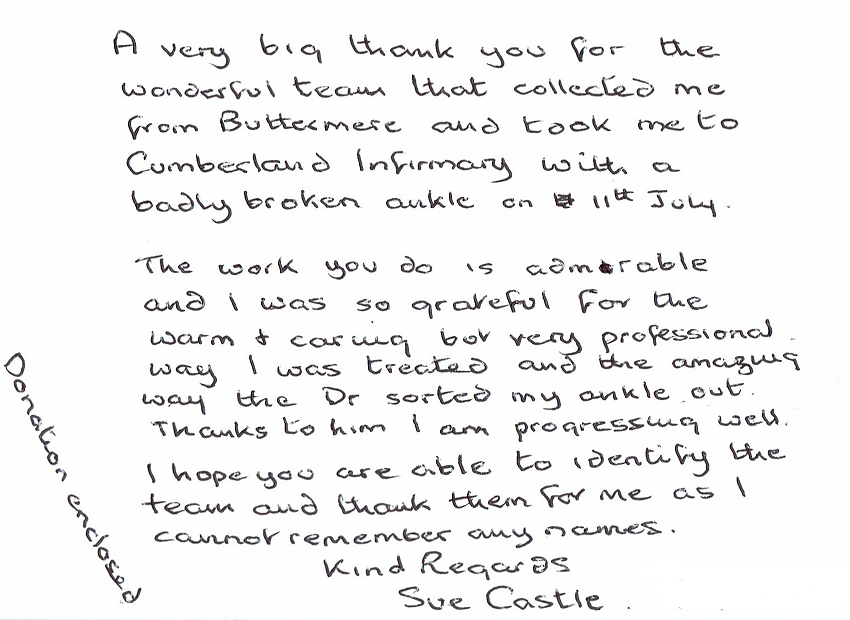 A very big thank you for the
wonderful team that collected me
from Buttermere and took me to
Cumberland Infirmary with a
badly broken ankle on 11th July.
The work you do is admirable
and I was so grateful for the
warm & caring but very professional
way I was treated and the amazing
way the Dr sorted my ankle out.
Thanks to him I am progressing well.
I hope you are able to identify the
team and thank them for me as I
cannot remember any names.
Kind Regards
Sue Castle.
Donation enclosed